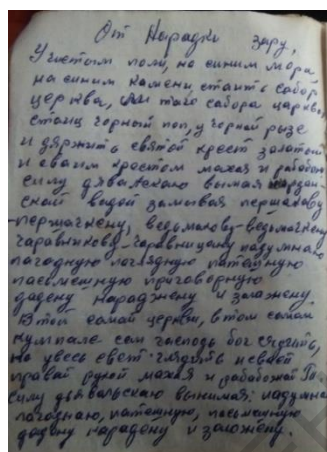 От Нарадки зару,
У чистым поли, на синим мора,
на синим камени, стаить сабор
церква, у таго сабора царквы
стаиц чорный поп, у чорнай рызе
и дяржить святой крест залатой
и сваим крестом махая и
силу дявальскаю вымая
ской водой замовая
ведьмакову-ведьмачкену
чаравникову-чаравницкану надумнаю
пагодную паглядную патемную
пасьмешную приговорную
дадену нараджену и заложену.
В той самой церкви, в том самом
сам господь бог сядить,
на увесь свет глядить и сваей
правай рукой махая и
силу дьявольскаю вынимая: надумна
патемную, пасьмешную
дадену нарадену и заложену.